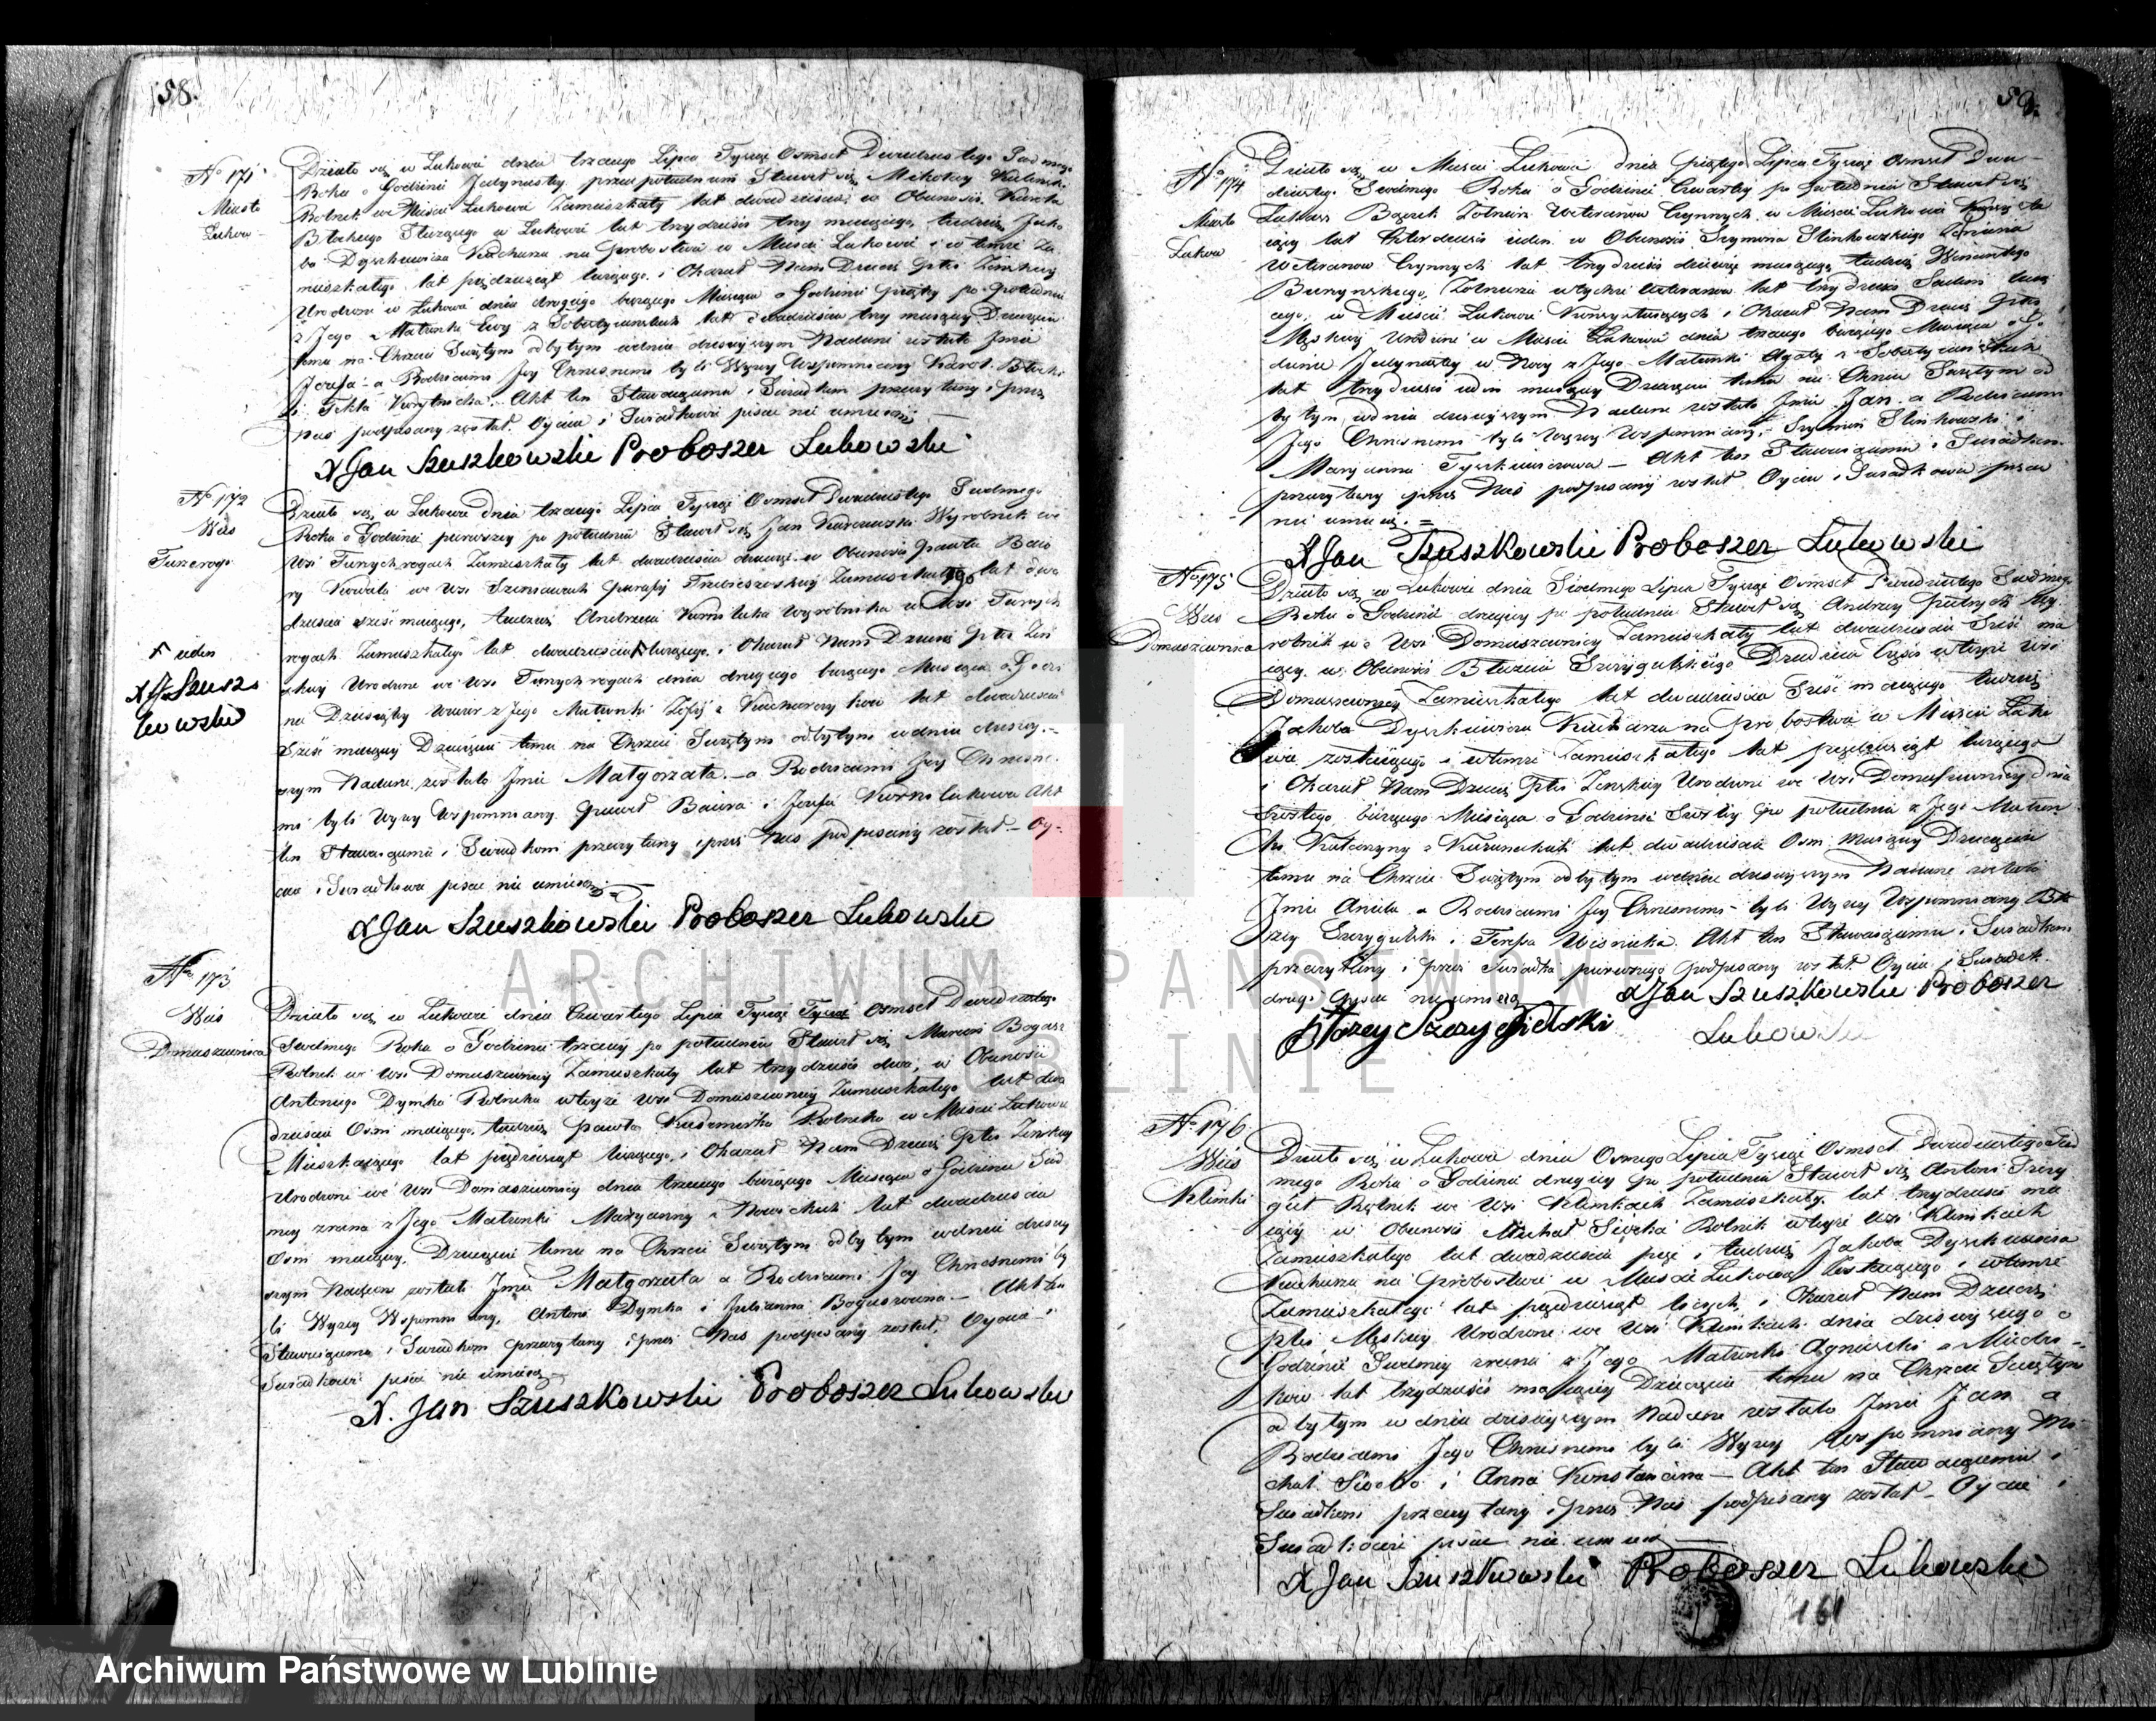 58.
No 171
Miasto
Łukow
Działo się w Łukowie dnia trzeciego Lipca Tysiąc Osmset Dwudziestego Siodmego
Roku o Godzinie Jedynastey przed południem Stawił się Mikołay
Rolnik w Mieście Łukowie Zamieszkały lat dwadzieścia w Obecności Karola
Błockiego Służącego w Łukowie lat trzydzieści trzy maiącego, tudzież Jako
ba Dyszkiewicza Kucharza na probostwie w Mieście Łukowie i w temże Za
mieszkałego lat pięćdziesiąt liczącego, i Okazał Nam Dziecię płci Żeńskiey
Urodzone w Łukowie dnia drugiego bieżącego Miesiąca o Godzinie piątey po południu
z Jego Małżonki Ewy z Sobotycińskich lat dwadzieścia trzy maiącey Dziecięciu
temu na Chrzcie Świętym odbytym w dniu dzisieyszym Nadane zostało Jmie
Jozefa a Rodzicami Jey Chrzesnemi byli Wyzey Wspomniony Karol Błocki
i Tekla Akt ten Stawaiącemu i Świadkom przeczytany i przez
Nas podpisany został. Oyciec i Świadkowie pisać nie umieią
X Jan Szuszkowski Proboszcz Łukowski
No 172
Wieś
Turzerogi
Działo się w Łukowie dnia trzeciego Lipca Tysiąc Osmset Dwudziestego Siodmego
Roku o Godzinie pierwszey po południu Stawił się Jan Karczewski Wyrobnik we
Wsi Turzychrogach Zamieszkały lat dwadzieścia dziewięć w Obecności Pawła Baio
ry Kowala we Wsi parafij Trzebieszowskiey Zamieszkałego lat dwa
dzieścia sześć maiącego, tudzież Andrzeia Korniluka wyrobnika w Wsi Turzych
rogach Zamieszkałego lat dwadzieścia liczącego, i Okazał Nam Dziecię płci Żeń
skiey Urodzone we Wsi Turzychrogach dnia drugiego bieżącego Miesiąca o Godzi
nie Dziesiątey wieczor z Jego Małżonki Zofij z Kucharczykow lat dwadzieścia
Sześć maiącey Dziecięciu temu na Chrzcie Świętym odbytym w dniu dzisiey
szym Nadane zostało Jmie Małgorzata a Rodzicami Jey Chrzesne
mi byli Wyzey Wspomniony Paweł Baiora i Jozefa Kornilukowa Akt
ten Stawaiącemu i Świadkom przeczytany i przez Nas podpisany został Oy
ciec i Świadkowie pisać nie umieią
X Jan Szuszkowski Proboszcz Łukowski
ieden
X J Szusz
kowski
No 173
Wieś
Domaszewnica
Działo się w Łukowie dnia Czwartego Lipca Tysiąc Tysiąc Osmset Dwudziestego
Siodmego Roku o Godzinie trzeciey po południu Stawił się Marcin Bogusz
Rolnik we Wsi Domaszewnicy Zamieszkały lat trzydzieści dwa, w Obecności
Antoniego Dymka Rolnika w teyże Wsi Domaszewnicy Zamieszkałego lat dwa
dzieścia Osm maiącego, tudzież Pawła Rolnika w Mieście Łukowie
Mieszkaiącego lat pięćdziesiąt liczącego, i Okazał Nam Dziecię płci Żeńskiey
Urodzone we Wsi Domaszewnicy dnia trzeciego bieżącego Miesiąca o Godzinie Siod
mey zrana z Jego Małżonki Maryanny z Nowickich lat dwadzieścia
Osm maiącey, Dziecięciu temu na Chrzcie Świętym odbytym w dniu dzisiey
szym Nadane zostało Jmie Małgorzata a Rodzicami Jey Chrzesnemi by
li Wyzey Wspomniony Antoni Dymka i Julianna Boguszowna. Akt ten
Stawaiącemu i Świadkom przeczytany i przez Nas podpisany został, Oyciec i
Świadkowie pisać nie umieią
X. Jan Szuszkowski Proboszcz Łukowski
59.
No 174
Miasto
Łukow
Działo się w Mieście Łukowie dnia piątego Lipca Tysiąc Osmset Dwu
dziestego Siodmego Roku o Godzinie Czwartey po południu Stawił się
Łukasz Bozek Zołnierz Weteranow Czynnych w Mieście Łukowie
iący lat Czterdzieści ieden w Obecności Szymona Slinkowskiego
Weteranow Czynnych lat trzydzieści dziewięć maiącego tudzież Wincentego
Burzynskiego, Zołnierza w tychże Weteranow lat trzydzieści Siedm licz
ącego, w Mieście Łukowie Konsystuiących i Okazał Nam Dziecię płci
Męskiey Urodzone w Mieście Łukowie dnia trzeciego bieżącego Miesiąca o Go
dzinie Jedynastey w Nocy z Jego Małżonki Agaty z Sobotycińskich
lat trzydzieści ieden maiącey Dziecięciu temu na Chrzcie Świętym od
bytym w dniu dzisieyszym Nadane zostało Jmie Jan a Rodzicami
Jego Chrzesnemi byli Wyzey Wspomniony Szymon Slinkowski i
Maryanna Tyszkiewiczowa — Akt ten Stawaiącemu i Świadkom
przeczytany i przez Nas podpisany został Oyciec i Świadkowie pisać
nie umieią. =
X Jan Szuszkowski Proboszcz Łukowski
No 175
Wieś
Domaszewnica
Działo się w Łukowie dnia Siodmego Lipca Tysiąc Osmset Dwudziestego Siodmego
Roku o Godzinie drugiey po południu Stawił się Andrzey Wy
robnik we Wsi Domaszewnicy Zamieszkały lat dwadzieścia Sześć ma
iący, w Obecności Błazeia Szczygielskiego Dziedzica Części w teyże Wsi
Domaszewnicy Zamieszkałego lat dwadzieścia Sześć maiącego tudzież
Jakoba Dyszkiewicza Kucharza na probostwie w Mieście Łuko
wie zostaiącego i w temże Zamieszkałego lat pięćdziesiąt liczącego
i Okazał Nam Dziecię płci Żenskiey Urodzone we Wsi Domaszewnicy dnia
Szostego bieżącego Miesiąca o Godzinie Szostey po południu z Jego Małżon
ki Katarzyny z lat dwadzieścia Osm maiącey Dziecięciu
temu na Chrzcie Świętym odbytym w dniu dzisieyszym Nadane zostało
Jmie Aniela a Rodzicami Jey Chrzesnemi byli Wyzey Wspomniony Bła
zey Szczygielski i Teressa Akt ten Stawaiącemu i Świadkom
przeczytany i przez Świadka pierwszego podpisany został Oyciec i Świadek
drugi pisać nie umieią
X Jan Szuszkowski Proboszcz
Łukowski
Błazey Szczygielski
No 176
Wieś
Klimki
Działo się w Łukowie dnia Osmego Lipca Tysiąc Osmset Dwudziestego Siod
mego Roku o Godzinie drugiey po południu Stawił się Antoni Szczy
gieł Rolnik we Wsi Klimkach Zamieszkały, lat trzydzieści ma
iący w Obecności Michał Sioćka Rolnik w teyże Wsi Klimkach
Zamieszkałego lat dwadzieścia pięć i tudzież Jakoba Dyszkiewicza
Kucharza na Probostwie w Mieście Łukowie Zostaiącego i w temże
Zamieszkałego lat pięćdziesiąt liczących, i Okazał Nam Dziecię
płci Męskiey Urodzone we Wsi Klimkach dnia dzisieyszego o
Godzinie Siodmey zrana z Jego Małżonki Agnieszki z
kow lat trzydzieści maiącey Dziecięciu temu na Chrzcie Świętym
odbytym w dniu dzisieyszym Nadane zostało Jmie Jan a
Rodzicami Jego Chrzesnemi byli Wyzey Wspomniony Mi
chał i Anna Konstancina — Akt ten Stawaiącemu i
Świadkom przeczytany i przez Nas podpisany został — Oyciec i
Świadkowie pisać nie umieią
X Jan Szuszkowski Proboszcz Łukowski
161
ARCHIWUM PAŃSTWOWE
W LUBLINIE
Archiwum Państwowe w Lublinie